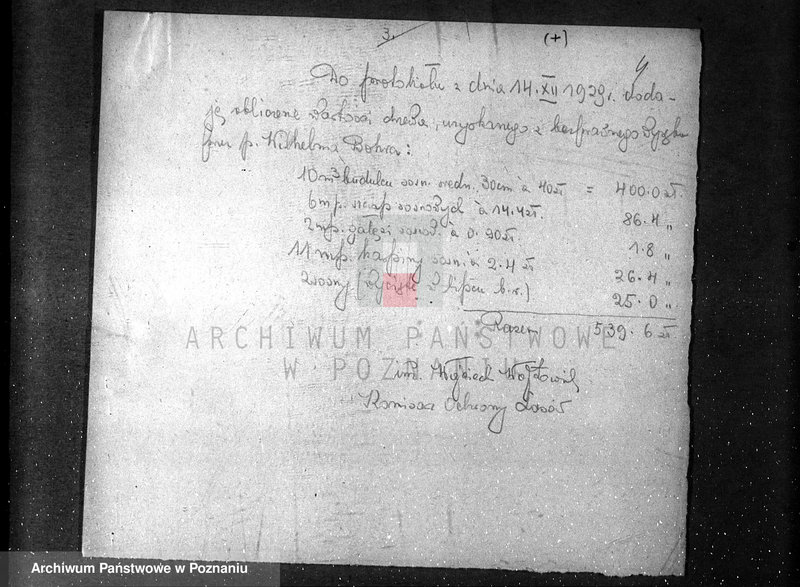 3.
(+)
4
Do protokołu z dnia 14.XII 1929 r. doda-
ję obliczenie wartości drewna, uzyskanego z bezprawnego wyrębu
przez p. Wilhelma Bohra:
10 m³ budulcu sosn. średn. 30cm à 40zł = 400.0 zł.
6 mp. szczap sosnowych à 14.4 zł. 86.4 „
2 mp. gałęzi sosnow. à 0.90 zł. 1.8 „
11 mp. karpiny sosn. à 2.4 zł 26.4 „
w lipcu b.r.) 25.0 „
Razem 539.6 zł
inż. Wojciech
Komisarz Ochrony Lasów
ARCHIWUM PAŃSTWOWE
W POZNANIU
Archiwum Państwowe w Poznaniu